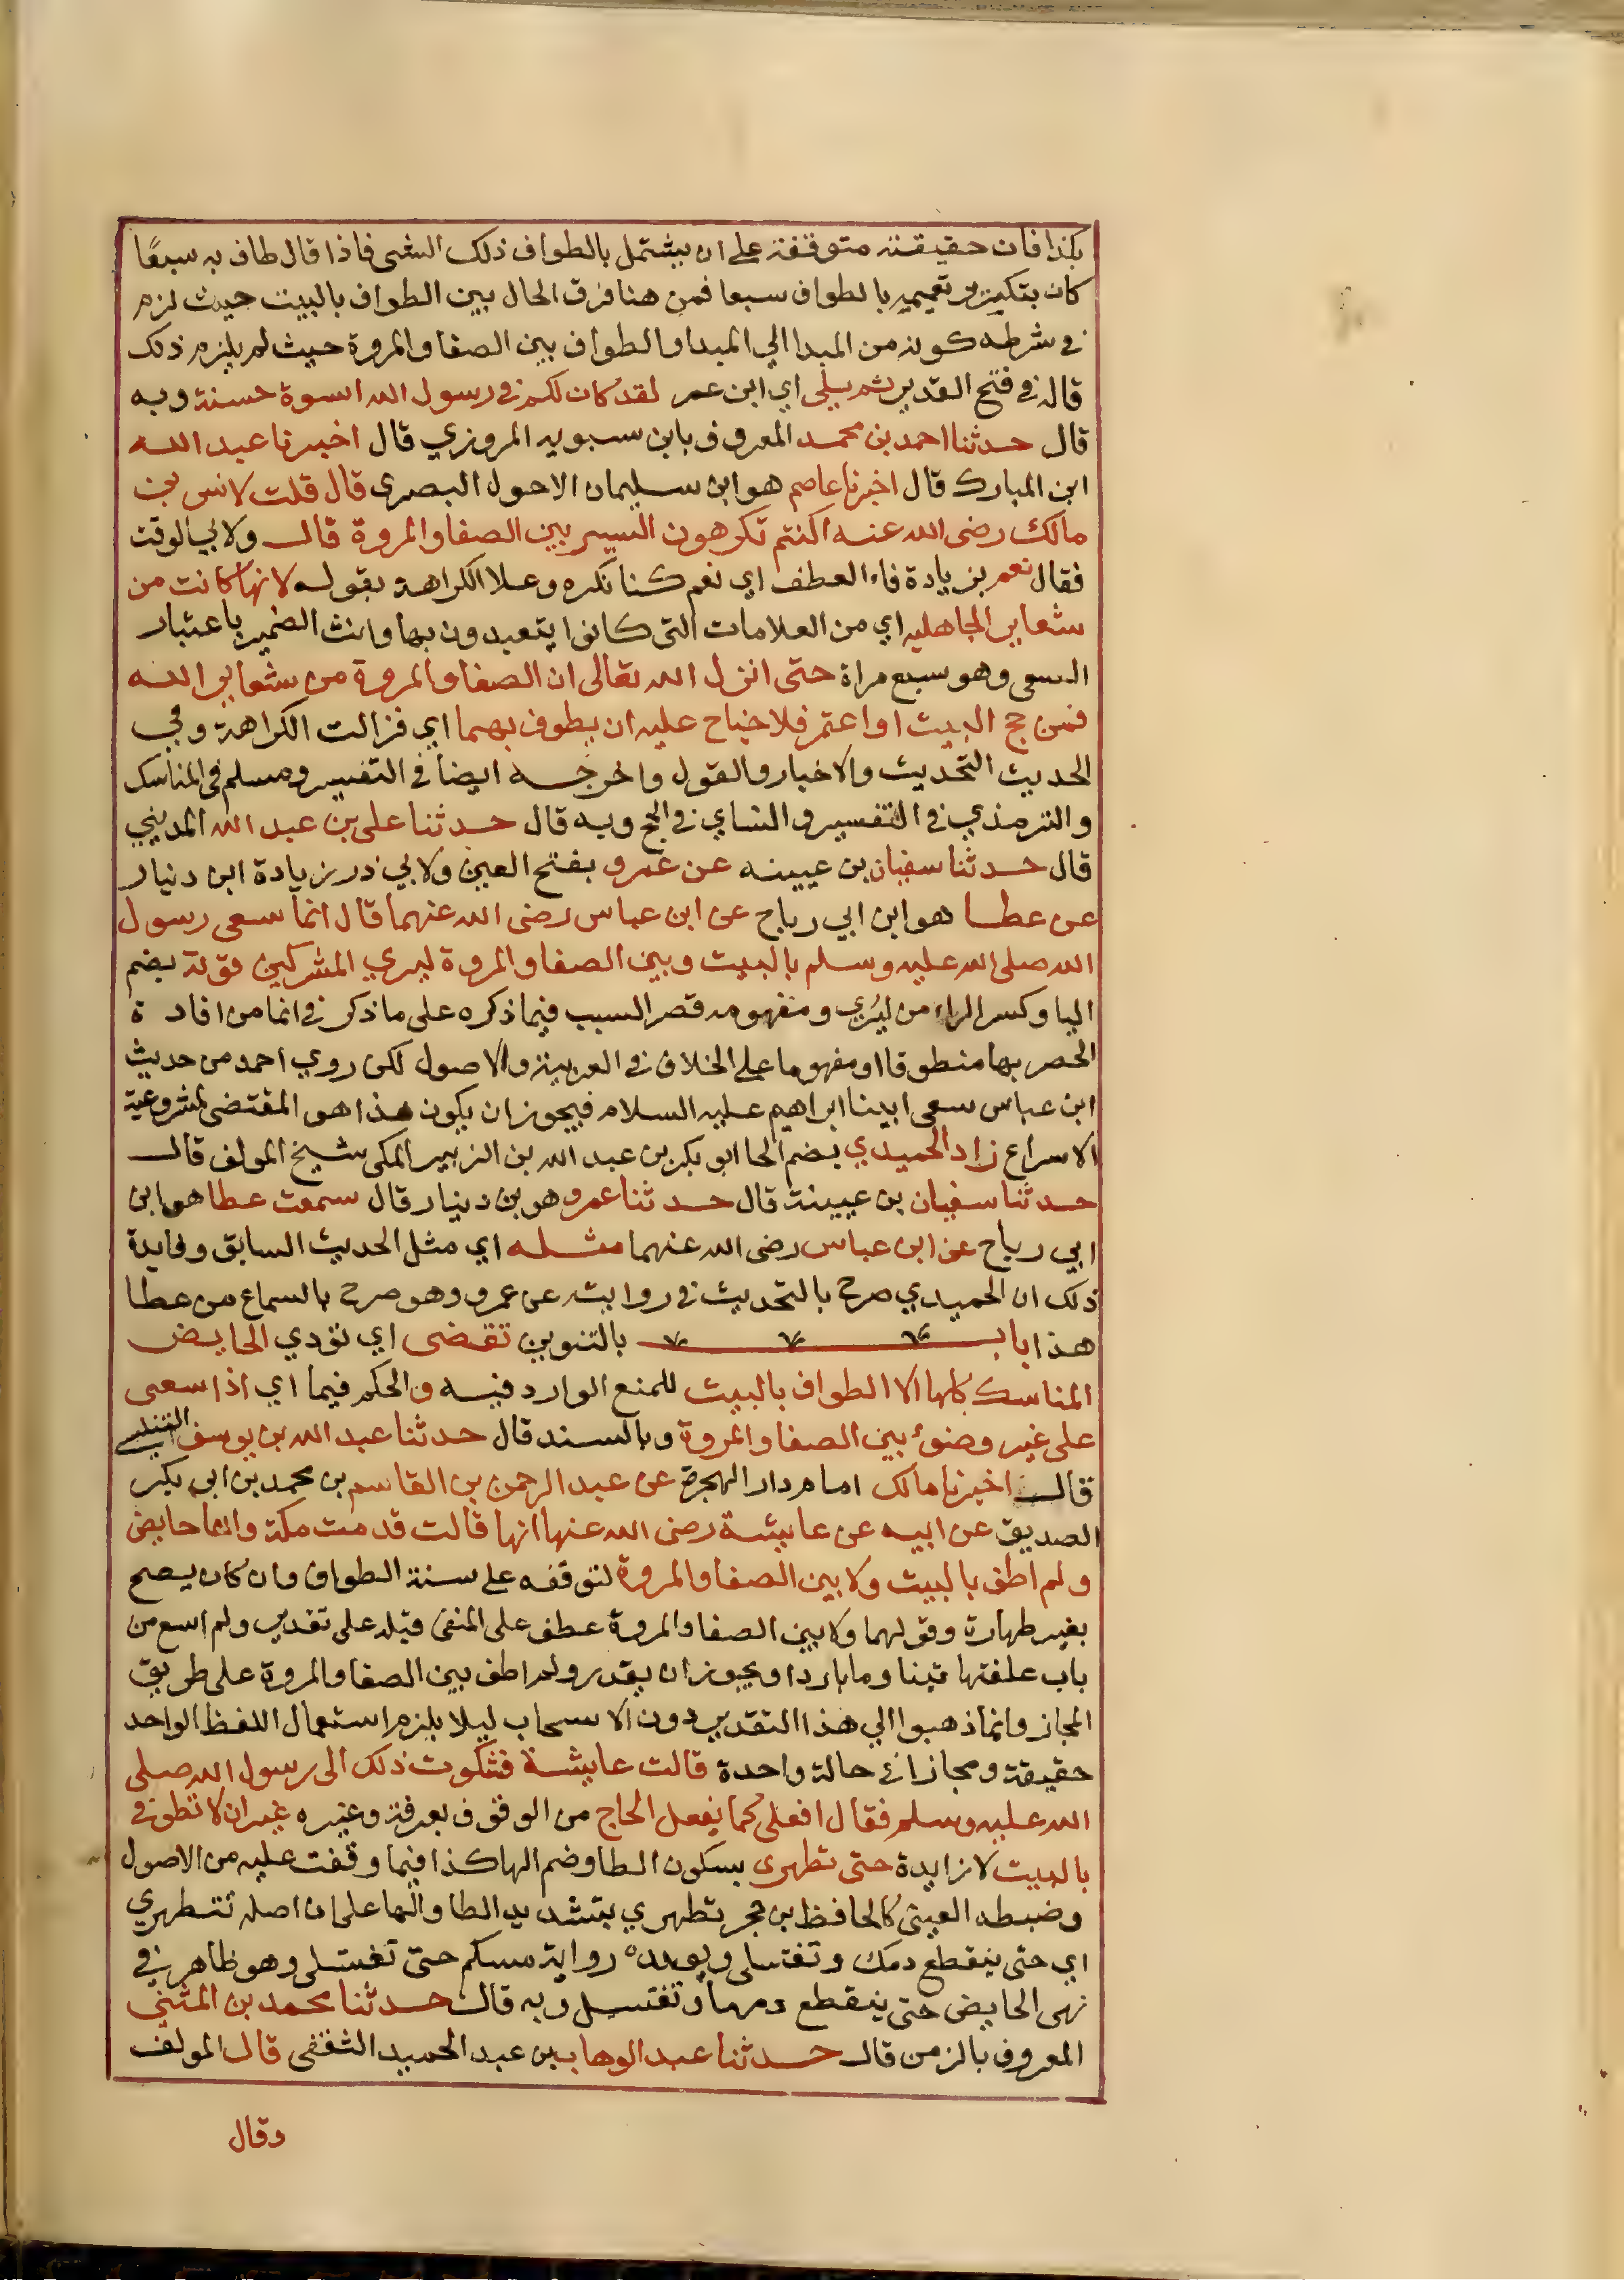 بكذا فان حقيقته متوقفة على ان يشتمل بالطواف ذلك الشى فاذا قال طاف به سبعًا
كان بتكرير تعميمه بالطواف سبعا فمن هنا فرق الحال بين الطواف بالبيت حيث لزم
في شرطه كونه من المبدا الي المبدا والطواف بين الصفا والمروة حيث لم يلزم ذلك
قاله في فتح القدير ثم يلى اي ابن عمر لقد كان لكم في رسول الله اسوة حسنة وبه
قال حدثنا احمد بن محمد المعروف بابن سبويه المروزي قال اخبرنا عبد الله
ابن المبارك قال اخبرنا عاصم هو ابن سليمان الاحول البصرى قال قلت لانس بن
مالك رضى الله عنه اكنتم تكرهون السير بين الصفا والمروة قال ولابي الوقت
فقال نعم بزيادة فاء العطف اي نعم كنا نكره وعلل الكراهة بقوله لانها كانت من
شعاير الجاهليه اي من العلامات التى كانوا يتعبدون بها وانث الضمير باعتبار
السعى وهو سبع مراة حتى انزل الله تعالى ان الصفا والمروة من شعاير الله
فمن حج البيت او اعتمر فلا جناح عليه ان يطوف بهما اي فزالت الكراهة وفي
الحديث التحديث والاخبار والقول واخرجه ايضا في التفسير ومسلم فى المناسك
والترمذي في التفسير والنساي في الحج وبه قال حدثنا على بن عبد الله المديني
قال حدثنا سفيان بن عيينه عن عَمرو بفتح العين ولابي ذر بزيادة ابن دنيار
عن عطا هو ابن ابي رباح عن ابن عباس رضى الله عنهما قال انما سعى رسول
الله صلى الله عليه وسلم بالبيت وبين الصفا والمروة ليري المشركين قوته بضم
اليا وكسر الراء من ليُري ومفهومه قصر السبب فيما ذكره على ما ذكر في انما من افادة
الحصر بها منطوقا او مفهوما على الخلاف في العربية والاصول لكن روي احمد من حديث
ابن عباس سعى ابينا ابراهيم عليه السلام فيجوز ان يكون هذا هو المقتضى لمشروعية
الاسراع زاد الحميدي بضم الحا ابو بكر بن عبد الله بن الزبير المكى شيخ المولف قال
حدثنا سفيان بن عيينة قال حدثنا عمرو هو بن دنيار قال سمعت عطا هو ابن
ابي رباح عن ابن عباس رضى الله عنهما مثله اي مثل الحديث السابق وفايدة
ذلك ان الحميدي صرح بالتحديث في روايته عن عمرو وهو صرح بالسماع من عطا
هذا باب بالتنوين تقضى اي تؤدي الحايض
المناسك كلها الا الطواف بالبيت للمنع الوارد فيه والحكم فيما اي اذا سعى
على غير وضوء بين الصفا والمروة وبالسند قال حدثنا عبد الله بن يوسف التنيسي
قال اخبرنا مالك امام دار الهجرة عن عبد الرحمن بن القاسم بن محمد بن ابي بكر
الصديق عن ابيه عن عايشة رضى الله عنها انها قالت قدمت مكة وانا حايض
ولم اطف بالبيت ولا بين الصفا والمروة لتوقفه على سنة الطواف وان كان يصح
بغير طهارة وقولها ولا بين الصفا والمروة عطف على المنفى قبله على تقدير ولم اسع من
باب علفتها تبنا وما باردا ويجوز ان يقدر ولم اطف بين الصفا والمروة على طريق
المجاز وانما ذهبوا الي هذا التقدير دون الاسحاب ليلا يلزم استعمال اللفظ الواحد
حقيقة ومجازا في حالة واحدة قالت عايشة فشكوت ذلك الى رسول الله صلى
الله عليه وسلم فقال افعلى كما يفعل الحاج من الوقوف بعرفة وغيره غير ان لا تطوفي
بالبيت لا زايدة حتى تطهرى بسكون الطا وضم الها كذا فيما وقفت عليه من الاصول
وضبطه العينى كالحافظ بن حجر تطهري بتشديد الطا والها على ان اصله تتطهري
اي حتى ينقطع دمك وتغتسلى ويويده رواية مسلم حتى تغتسلى وهو ظاهر في
نهى الحايض حتى ينقطع دمها وتغتسل وبه قال حدثنا محمد بن المثنى
المعروف بالزمن قال حدثنا عبد الوهاب بن عبد الحميد الثقفى قال المولف
وقال